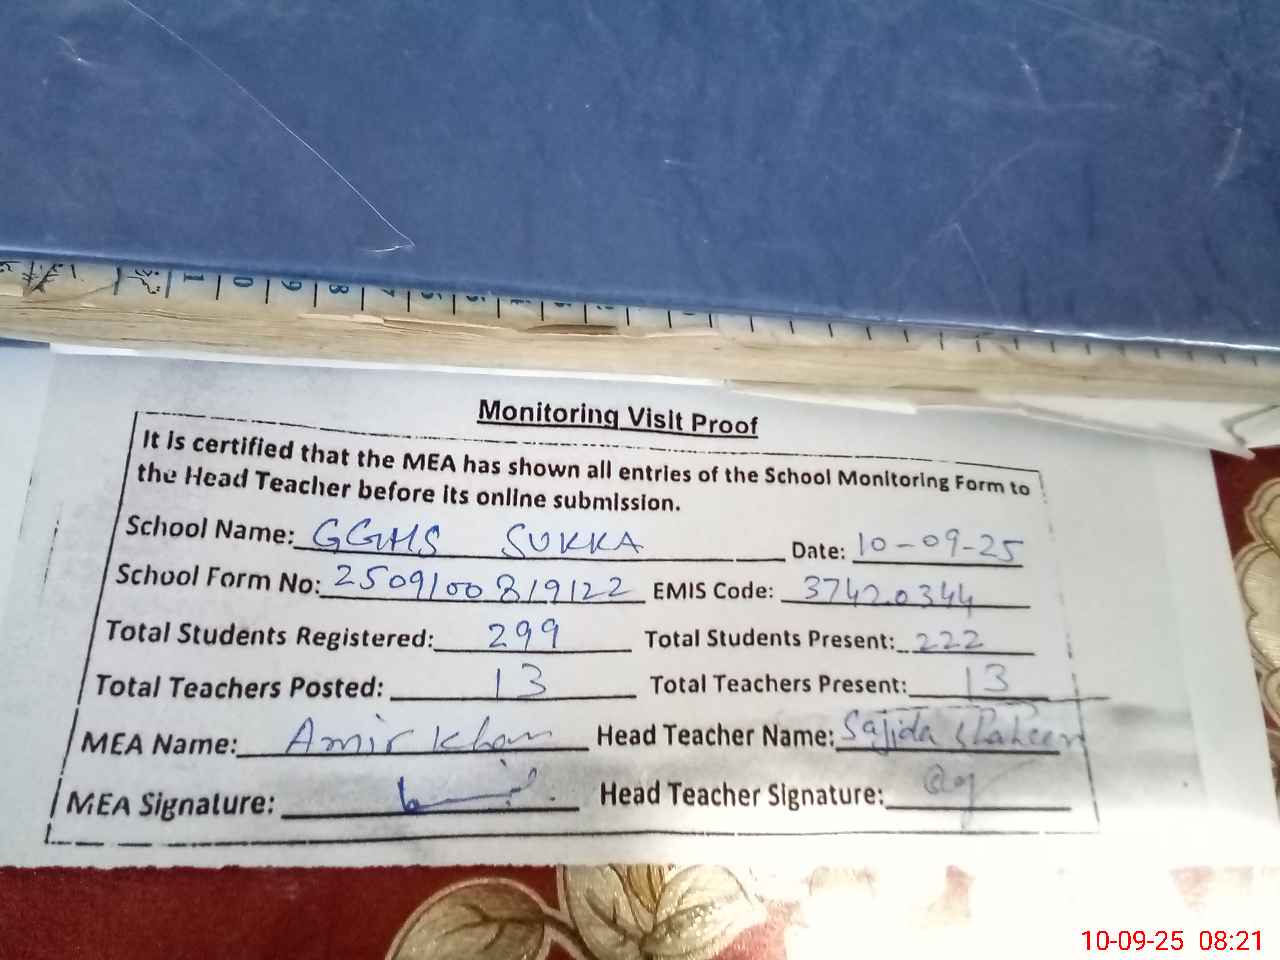 Monitoring Visit Proof
It is certified that the MEA has shown all entries of the School Monitoring Form to
the Head Teacher before its online submission.
School Name: GGHS SUKKA Date: 10-09-25
School Form No: 2509100819122 EMIS Code: 37420344
Total Students Registered: 299 Total Students Present: 222
Total Teachers Posted: 13 Total Teachers Present: 13
MEA Name: Amir Khan Head Teacher Name: Sajida Shaheen
MEA Signature: Head Teacher Signature:
10-09-25 08:21